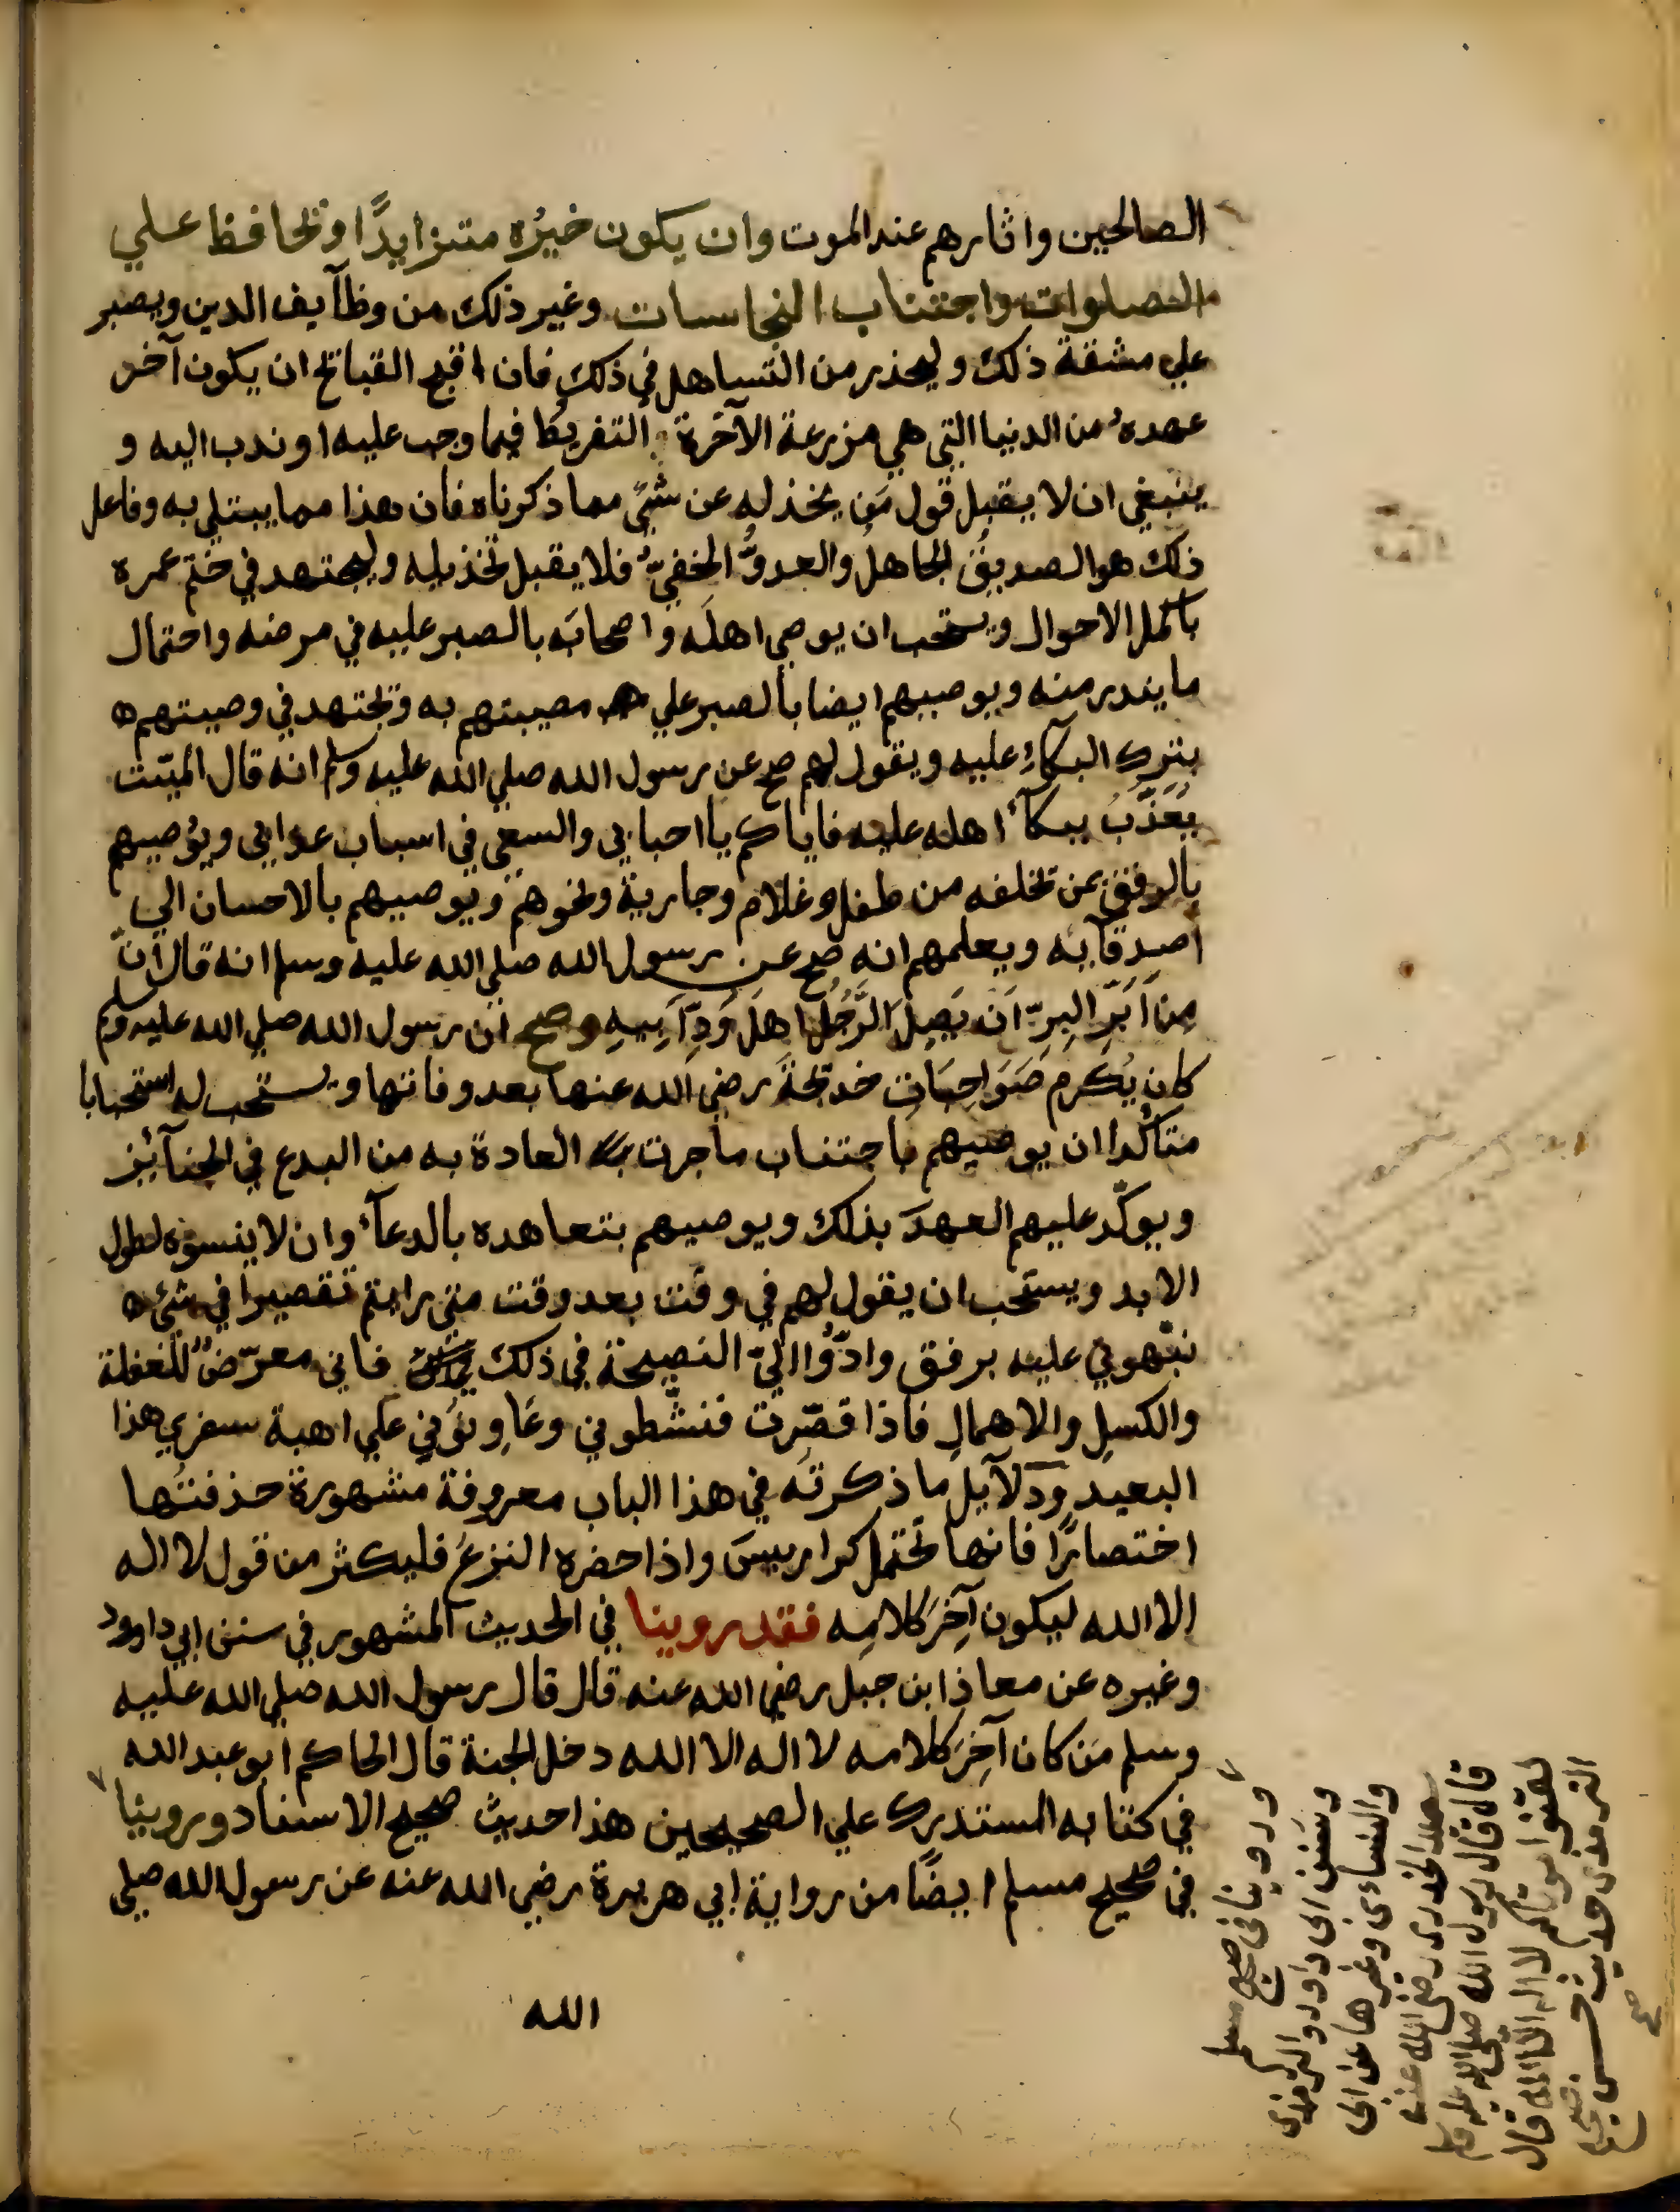 الصالحين واثارهم عند الموت وان يكون خيرُه متزايدًا ويحافظ علي
الصلوات واجتناب النجاسات وغير ذلك من وظآيف الدين ويصبر
علي مشقة ذلك وليحذر من التساهل في ذلك فان اقبح القبائح ان يكون آخر
عهده من الدنيا التي هي مزرعة الآخرة التفريط فيما وجب عليه او ندب اليه و
ينبغي ان لا يقبل قول مَن يخذله عن شئ مما ذكرناه فان هذا مما يبتلي به وفاعل
ذلك هو الصديقُ الجاهلُ والعدوُّ الخفيّ فلا يقبل تخذيله وليجتهد في ختم عمره
باكمل الاحوال ويستحب ان يوصي اهلَه واصحابَه بالصبر عليه في مرضه واحتمال
ما يندر منه ويوصيهم ايضا بالصبر علي مصيبتهم به ويجتهد في وصيتهم
بترك البكآءِ عليه ويقول لهم صح عن رسول الله صلي الله عليه وسلم انه قال الميّت
يُعَذَّبُ ببكآءِ اهله عليه فاياكم يا احبابي والسعي في اسباب عذابي ويوُصيهم
بالرفق بمن يخلفه من طفل وغلام وجارية ونحوهم ويوصيهم بالاحسان الي
اصدقآيه ويعلمهم انه صح عن رسول الله صلي الله عليه وسلم انه قال انّ
مِن اَبَرِّ البِرِّ اَن يَصِلَ الرَّجُلُ اَهلَ وَدِّ اَبِيهِ وصح ان رسول الله صلي الله عليه وسلم
كان يُكرِم صَوَاحِبَات خديجةَ رضي الله عنها بعد وفاتها ويستحب له استحبابا
متاكّدا ان يوصيهم باجتناب ما جرت العادة به من البدع في الجنآئِز
ويوكّد عليهم العهدَ بذلك ويوصيهم بتعاهده بالدعآءِ وان لا ينسوَه لطول
الابد ويستحب ان يقول لهم في وقت بعد وقت متي رايتم تقصيرا في شئ
نبّهوني عليه برفق وادّوا اليّ النصيحة في ذلك فاني معرّض للغفلة
والكسلِ والاهمالِ فاذا قصّرت فنشّطوني وعَاوِنُوني علي اهبة سفري هذا
البعيد ودلآيل ما ذكرتُه في هذا الباب معروفة مشهورة حذفتُها
اختصارًا فانها تحتمل كراريسَ واذا حضره النزعُ فليكثر من قول لا اله
الا الله ليكون آخِرَ كلامِه فقد روينا في الحديث المشهور في سنن ابي داوود
وغيره عن معاذ ابن جبل رضي الله عنه قال قال رسول الله صلي الله عليه
وسلم مَن كان آخِرَ كلامه لا اله الا الله دخل الجنة قال الحاكم ابو عبد الله
في كتابه المستدرك علي الصحيحين هذا حديث صحيح الاسناد وروينا
في صحيح مسلم ايضًا من رواية ابي هريرة رضي الله عنه عن رسول الله صلي
الله
وروينا في صحيح مسلم
وسنن ابى داود والترمذى
والنسائى وغيرها عن ابى
الخدرى رضى الله عنه
قال قال رسول الله صلى الله عليه وسلم
لقنوا موتاكم لا اله الا الله قال
الترمذى حديث حسن صحيح
صح